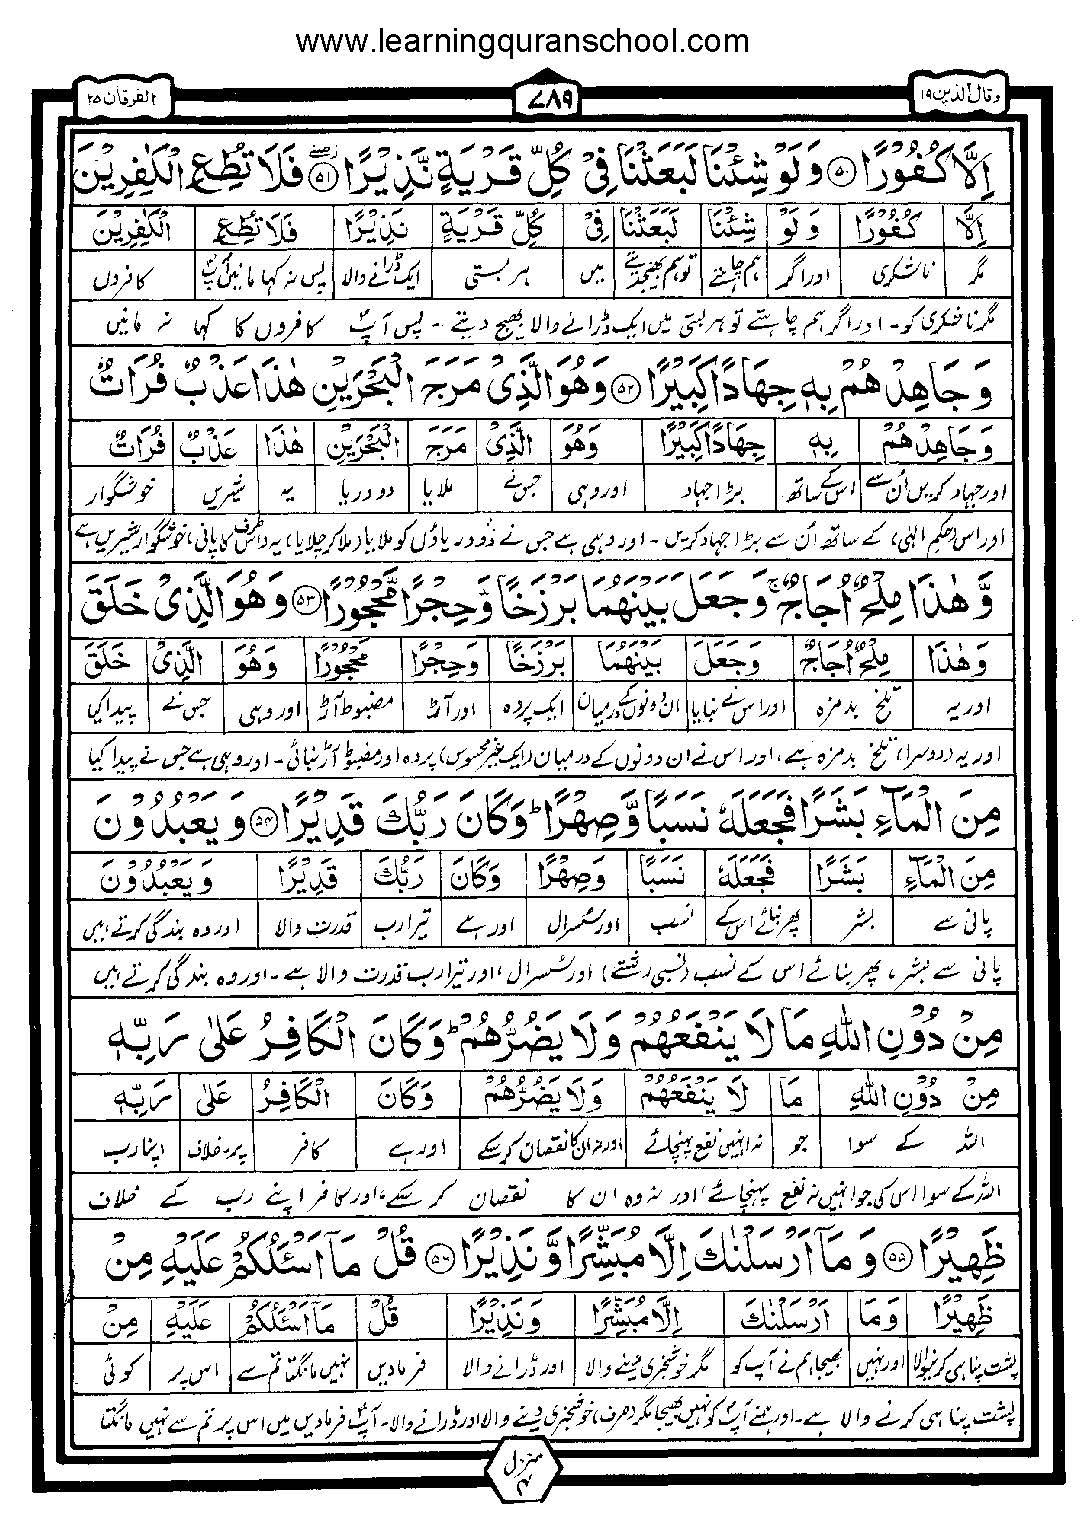 www.learningquranschool.com
وقال الذین ۱۹
۷۸۹
الفرقان ۲۵
اِلَّا كُفُوْرًا ۵۰ وَ لَوْ شِئْنَا لَبَعَثْنَا فِیْ كُلِّ قَرْیَةٍ نَّذِیْرًا ۵۱ فَلَا تُطِعِ الْكٰفِرِیْنَ
اِلَّا كُفُوْرًا وَ لَوْ شِئْنَا لَبَعَثْنَا فِیْ كُلِّ قَرْیَةٍ نَذِیْرًا فَلَا تُطِعِ الْكٰفِرِیْنَ
مگر ناشکری اور اگر ہم چاہتے تو ہم بھیجدیتے میں ہر بستی ایک ڈرانے والا پس نہ کہا مانیں آپ کافروں
مگر ناشکری کو۔ اور اگر ہم چاہتے تو ہر بستی میں ایک ڈرانے والا بھیج دیتے ۔ پس آپ کافروں کا کہا نہ مانیں
وَ جَاهِدْهُمْ بِهٖ جِهَادًا كَبِیْرًا ۵۲ وَ هُوَ الَّذِیْ مَرَجَ الْبَحْرَیْنِ هٰذَا عَذْبٌ فُرَاتٌ
وَ جَاهِدْهُمْ بِهٖ جِهَادًا كَبِیْرًا وَهُوَ الَّذِیْ مَرَجَ الْبَحْرَیْنِ هٰذَا عَذْبٌ فُرَاتٌ
اور جہاد کریں اُن سے اس کے ساتھ بڑا جہاد اور وہی جس نے ملایا دو دریا یہ شیریں خوشگوار
اور اس (حکم الٰہی) کے ساتھ اُن سے بڑا جہاد کریں ۔ اور وہی ہے جس نے دو دریاؤں کو ملایا (ملا کر چلایا) یہ (اس طرف کا پانی) خوشگوار شیریں ہے
وَّ هٰذَا مِلْحٌ اُجَاجٌ وَ جَعَلَ بَیْنَهُمَا بَرْزَخًا وَّ حِجْرًا مَّحْجُوْرًا ۵۳ وَ هُوَ الَّذِیْ خَلَقَ
وَ هٰذَا مِلْحٌ اُجَاجٌ وَ جَعَلَ بَیْنَهُمَا بَرْزَخًا وَ حِجْرًا مَحْجُوْرًا وَهُوَ الَّذِیْ خَلَقَ
اور یہ تلخ بدمزہ اور اس نے بنایا ان دونوں کے درمیان ایک پردہ اور آڑ مضبوط آڑ اور وہی جس نے پیدا کیا
اور یہ (دوسرا) تلخ بدمزہ ہے، اور اس نے ان دونوں کے درمیان (ایک غیر محسوس) پردہ اور مضبوط آڑ بنائی ۔ اور وہی ہے جس نے پیدا کیا
مِنَ الْمَآءِ بَشَرًا فَجَعَلَهٗ نَسَبًا وَّ صِهْرًا ؕ وَ كَانَ رَبُّكَ قَدِیْرًا ۵۴ وَ یَعْبُدُوْنَ
مِنَ الْمَآءِ بَشَرًا فَجَعَلَهٗ نَسَبًا وَ صِهْرًا وَ كَانَ رَبُّكَ قَدِیْرًا وَ یَعْبُدُوْنَ
پانی سے بشر پھر بنائے اس کے نسب اور سسرال اور ہے تیرا رب قدرت والا اور وہ بندگی کرتے ہیں
پانی سے بشر، پھر بنائے اس کے نسب (نسبی رشتے) اور سسرال، اور تیرا رب قدرت والا ہے ۔ اور وہ بندگی کرتے ہیں
مِنْ دُوْنِ اللّٰهِ مَا لَا یَنْفَعُهُمْ وَ لَا یَضُرُّهُمْ ؕ وَ كَانَ الْكَافِرُ عَلٰی رَبِّهٖ
مِنْ دُوْنِ اللّٰهِ مَا لَا یَنْفَعُهُمْ وَ لَا یَضُرُّهُمْ وَ كَانَ الْكَافِرُ عَلٰی رَبِّهٖ
اللہ کے سوا جو نہ انہیں نفع پہنچائے اور نہ ان کا نقصان کر سکے اور ہے کافر پر۔خلاف اپنا رب
اللہ کے سوا اس کی جو انہیں نہ نفع پہنچائے، اور نہ وہ ان کا نقصان کر سکے، اور کافر اپنے رب کے خلاف
ظَهِیْرًا ۵۵ وَ مَاۤ اَرْسَلْنٰكَ اِلَّا مُبَشِّرًا وَّ نَذِیْرًا ۵۶ قُلْ مَاۤ اَسْـَٔلُكُمْ عَلَیْهِ مِنْ
ظَهِیْرًا وَمَا اَرْسَلْنٰكَ اِلَّا مُبَشِّرًا وَ نَذِیْرًا قُلْ مَاۤ اَسْـَٔلُكُمْ عَلَیْهِ مِنْ
پشت پناہی کرنیوالا اور نہیں بھیجا ہم نے آپ کو مگر خوشخبری دینے والا اور ڈرانے والا فرمادیں نہیں مانگتا تم سے اس پر کوئی
پشت پناہی کرنے والا ہے۔ اور ہم نے آپ کو نہیں بھیجا مگر (صرف) خوشخبری دینے والا اور ڈرانے والا۔ آپ فرمادیں میں اس پر تم سے نہیں مانگتا
منزل ۴